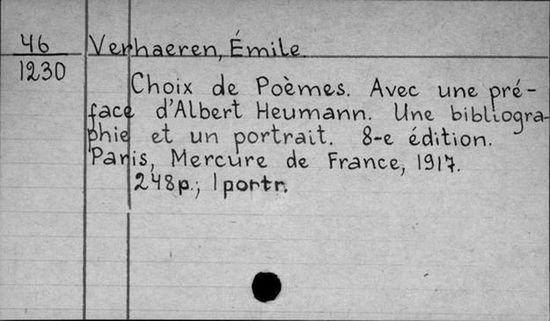 46
1230
Verhaeren, Émile
Choix de Poèmes. Avec une pré-
face d'Albert Heumann. Une bibliogra-
phie et un portrait. 8-e édition.
Paris, Mercure de France, 1917.
248p.; 1 portr.